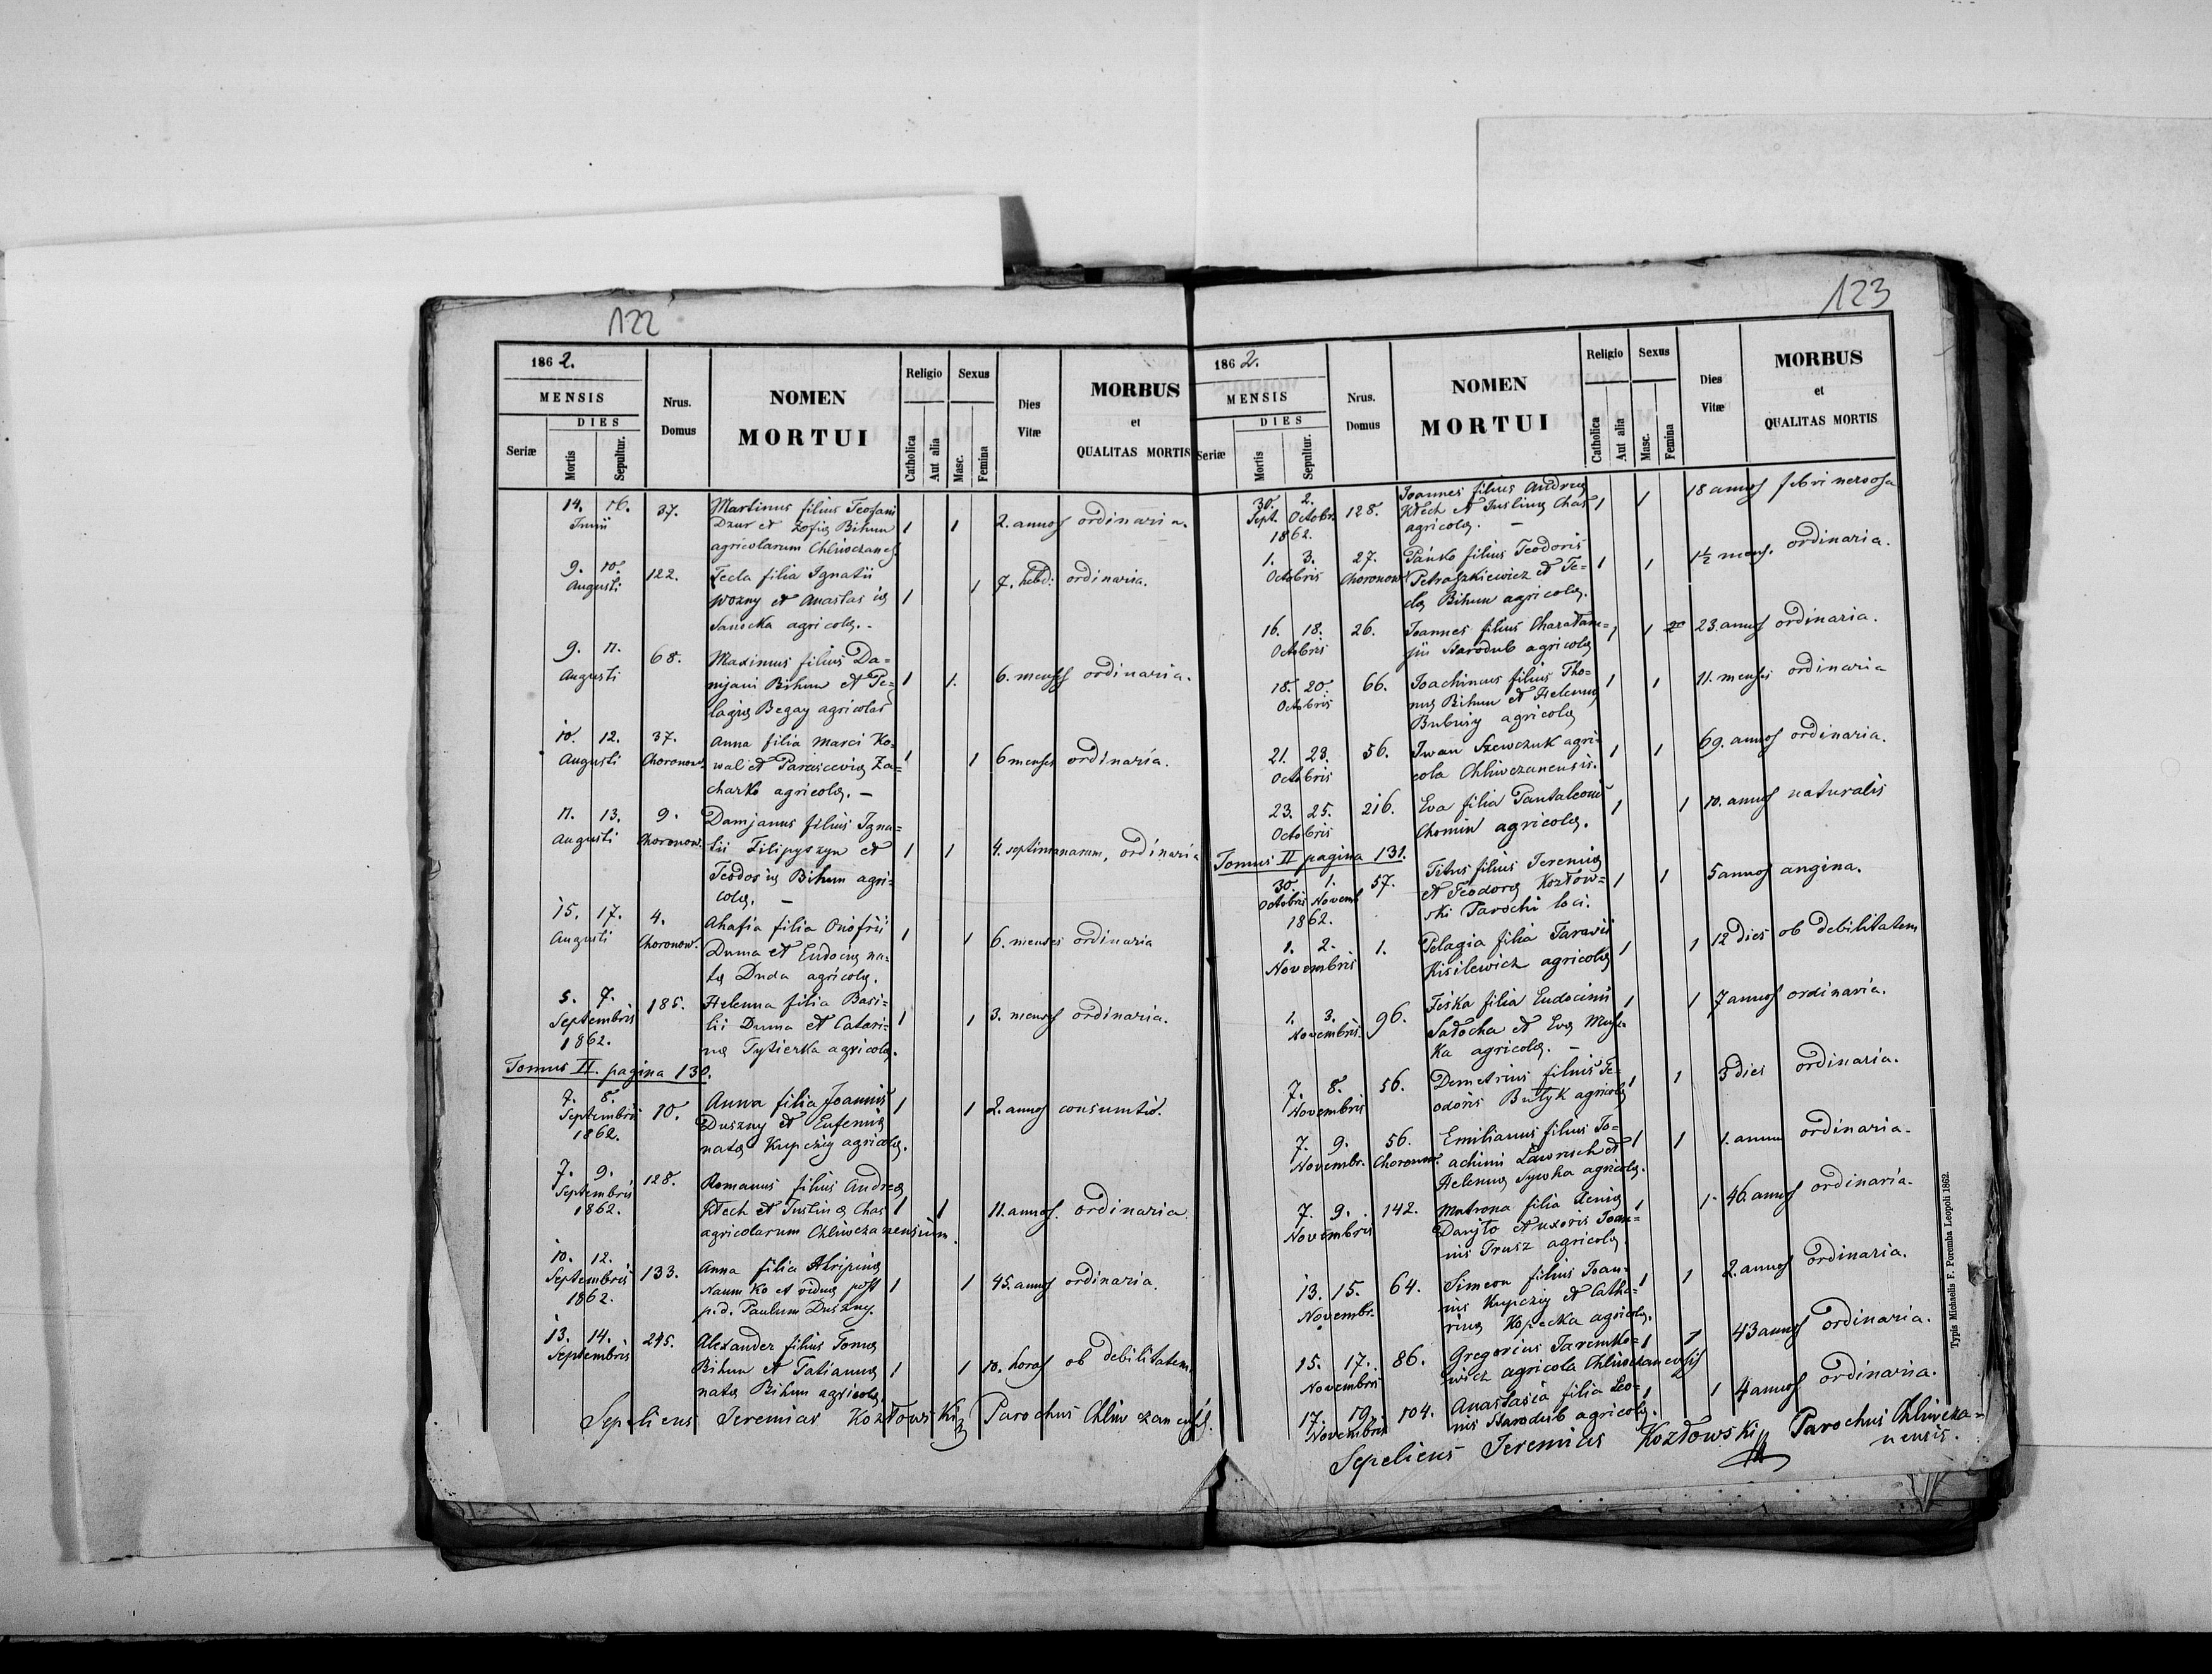 122
1862.
MENSIS
DIES
Seriæ
Mortis
Sepultur.
Nrus.
Domus
NOMEN
MORTUI
Religio
Catholica
Aut alia
Sexus
Masc.
Femina
Dies
Vitæ
MORBUS
et
QUALITAS MORTIS
14. 16. 37. Martinus filius Teofani
Junii Dzur et Zofiæ Bihun 1 1 2. annos ordinaria.
agricolarum Chliwczanes
9. 10. 122. Tecla filia Ignatii
Augusti Wozny et Anastasiæ 1 1 7. hebd: ordinaria.
Sanocka agricolæ. -
9. 11. 68. Maximus filius Da=
Augusti mjani Bihun et Pe= 1 1. 6. menses ordinaria.
lagiæ Begay agricolæ
10. 12. 37. Anna filia Marci Ko=
Augusti Choronow. wal et Parasceviæ Za= 1 1 6 menses ordinaria.
charko agricolæ. -
11. 13. 9. Damjanus filius Igna=
Augusti Choronow. tii Filipyszyn et 1 1 4. septimanarum, ordinaria
Teodosiæ Bihun agri=
colæ. -
15. 17. 4. Ahafia filia Onofrii
Augusti Choronow. Duma et Eudociæ na= 1 1 6. menses ordinaria
tæ Duda agricolæ.
5. 7. 185. Helenna filia Basi=
Septembris lii Duma et Catari= 1 1 3. menses ordinaria.
1862. næ Tytierka agricolæ.
Tomus II. pagina 130.
7. 8. 10. Anna filia Joannis
Septembris Duszny et Eufemiæ 1 1 2. annos consumtio.
1862. natæ Kupczig agricolæ.
7. 9. 128. Romanus filius Andreæ
Septembris Ktech et Justinæ Chas 1 1 11. annos. ordinaria.
1862. agricolarum Chliwczanensium.
10. 12. 133. Anna filia Ahripinæ
Septembris Naumko et vidua post 1 1 45. annos ordinaria.
1862. p.d. Paulum Duszny.
13. 14. 245. Alexander filius Tomæ
Septembris Bihun et Tatiannæ 1 1 10. horas ob debilitatem
natæ Bihun agricolæ.
Sepeliens Jeremias Kozłowski Parochus Chliwczanensis.
123
1862.
MENSIS
DIES
Seriæ
Mortis
Sepultur.
Nrus.
Domus
NOMEN
MORTUI
Religio
Catholica
Aut alia
Sexus
Masc.
Femina
Dies
Vitæ
MORBUS
et
QUALITAS MORTIS
30. 2. 128. Joannes filius Andreæ
Sept. Octobr. Ktech et Justinæ Chas 1 1 18 annos febri nervosa
1862. agricolæ. -
1. 3. 27. Pańko filius Teodoris
Octobris Choronow. Petraszkiewicz et Te= 1 1 1½ mens. ordinaria.
clæ Bihun agricolæ.
16. 18. 26. Joannes filius Charałam=
Octobris pii Starodub agricolæ 1 1 23. annos ordinaria.
18. 20. 66. Joachimus filius Tho=
Octobris mæ Bihun et Helennæ 1 1 11. menses ordinaria
Bubniy agricolæ
21. 23. 56. Iwan Szewczuk agri=
Octobris cola Chliwczanensis. 1 1 69. annos ordinaria.
23. 25. 216. Eva filia Pantaleonis
Octobris Chomin agricolæ. 1 1 10. annos naturalis
Tomus II pagina 131.
30. 1. 57. Titus filius Jeremiæ
Octobris Novemb et Teodoræ Kozłow= 1 1 5 annos angina.
1862. ski Parochi loci.
1. 2. 1. Pelagia filia Tarasii
Novembris Kisilewicz agricolæ 1 1 12 dies ob debilitatem
1. 3. 96. Feśka filia Eudocimi
Novembris. Satocha et Evæ 1 1 7 annos ordinaria.
ka agricolæ. -
7. 8. 56. Demetrius filius Te=
Novembris odoris Butyk agricolæ 1 1 3 dies ordinaria.
7. 9. 56. Emilianus filius Jo=
Novembr. Choronow. achimi Ławrisch et 1 1 1. annum ordinaria.
Helennæ Sywka agricolæ.
7. 9. 142. Matrona filia Xeniæ
Novembris Danjło et uxoris Joan= 1 1. 46. annos ordinaria.
nis Trusz agricolæ.
13. 15. 64. Simeon filius Joan=
Novembr. nis Kupczig et Catha= 1 1 2. annos ordinaria.
rinæ Kopecka agricolæ.
15. 17. 86. Gregorius Jaremko=
Novembris wicz agricola Chliwczanensis 1 1 43 annos ordinaria.
17. 19. 104. Anastasia filia Leo=
Novembris nis Starodub agricolæ. 1 1 4 annos ordinaria.
Sepeliens Jeremias Kozłowski Parochus Chliwcza=
nensis.
Typis Michaelis F. Poremba Leopoli 1862.